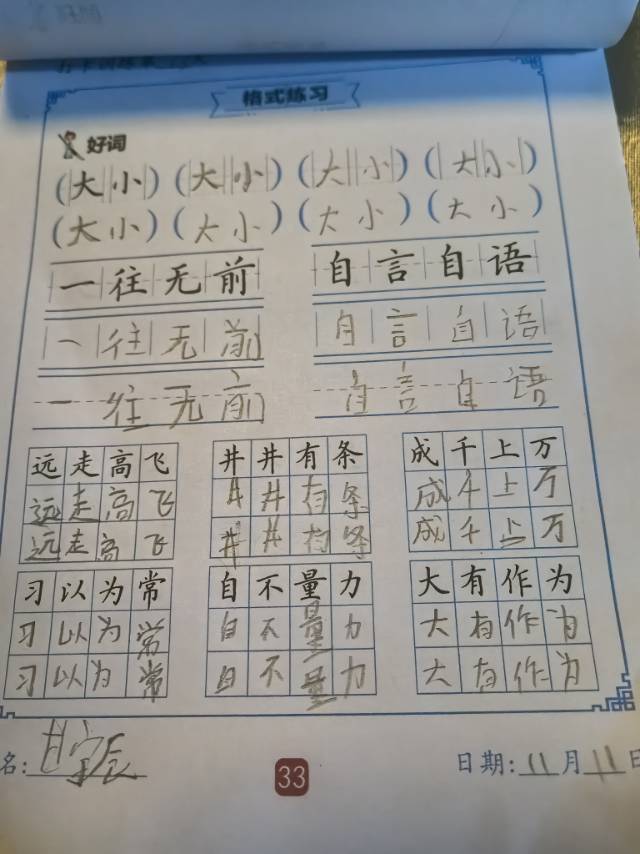 格式练习
好词
(大小) (大小) (大小) (大小)
(大小) (大小) (大小) (大小)
一往无前 自言自语
一往无前 自言自语
一往无前 自言自语
远走高飞 井井有条 成千上万
远走高飞 井井有条 成千上万
远走高飞 井井有条 成千上万
习以为常 自不量力 大有作为
习以为常 自不量力 大有作为
习以为常 自不量力 大有作为
名: 甘宝辰 33 日期: 11 月 11 日